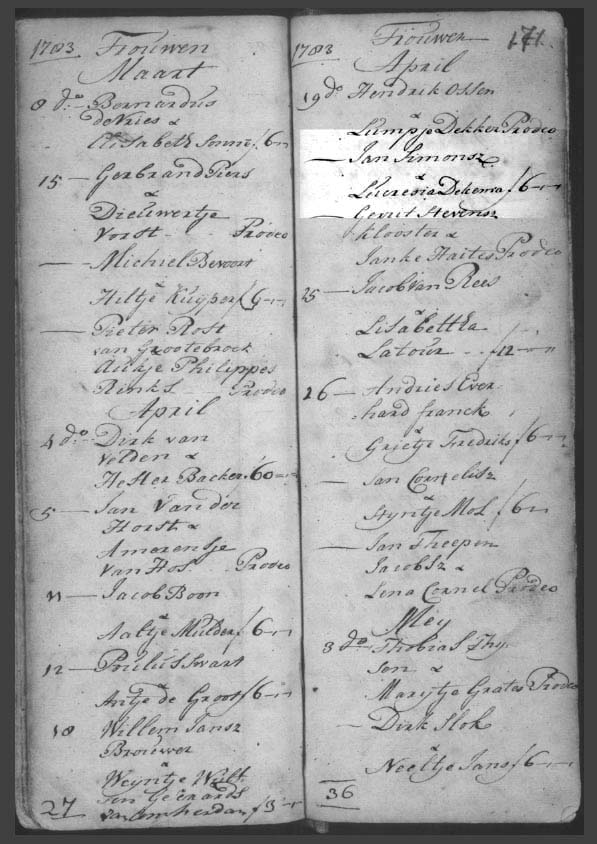 1783 Trouwen
Maart
8 do Bernardus
de Vries &
Elisabeth f 6--
15 - Gerbrand Piers
&
Dieuwertje
Vorst Prodeo
- Michiel Bevoort
Hiltje Kuyper f 6--
- Pieter Rost
van Grootebroek
Aukje Philippes
Rinks Prodeo
April
4 do Dirk van
Velden &
Hester Backer 60--
5 - Jan Van der
Horst &
Amerensje
Van Hos Prodeo
11 - Jacob Boon
Aaltje Mulder f 6--
12 - Poulus Swart
Antje de Groot f 6--
18 Willem Jansz
Brouwer
&
Weyntje
van Amsterdam f 3--
27
1783 Trouwen 171
April
19 do Hendrik Ossen
&
Lumpje Dekker Prodeo
- Jan Simonsz
&
Lucresia Dekema f 6--
- Gerrit Stevensz
Klooster &
Janke Haites Prodeo
25 - Jacob van Rees
Lisabettha
Latour f 12--
26 - Andries Ever
hard franck
Grietje Fredriks f 6--
- Jan Cornelisz
&
Styntje Mol f 6--
- Jan Theepen
Jacobsz &
Lena Cornel Prodeo
Mey
3 do Thobias Thy
son &
Marytje Grates Prodeo
- Dirk Slok
&
Neeltje Jans f 6--
36